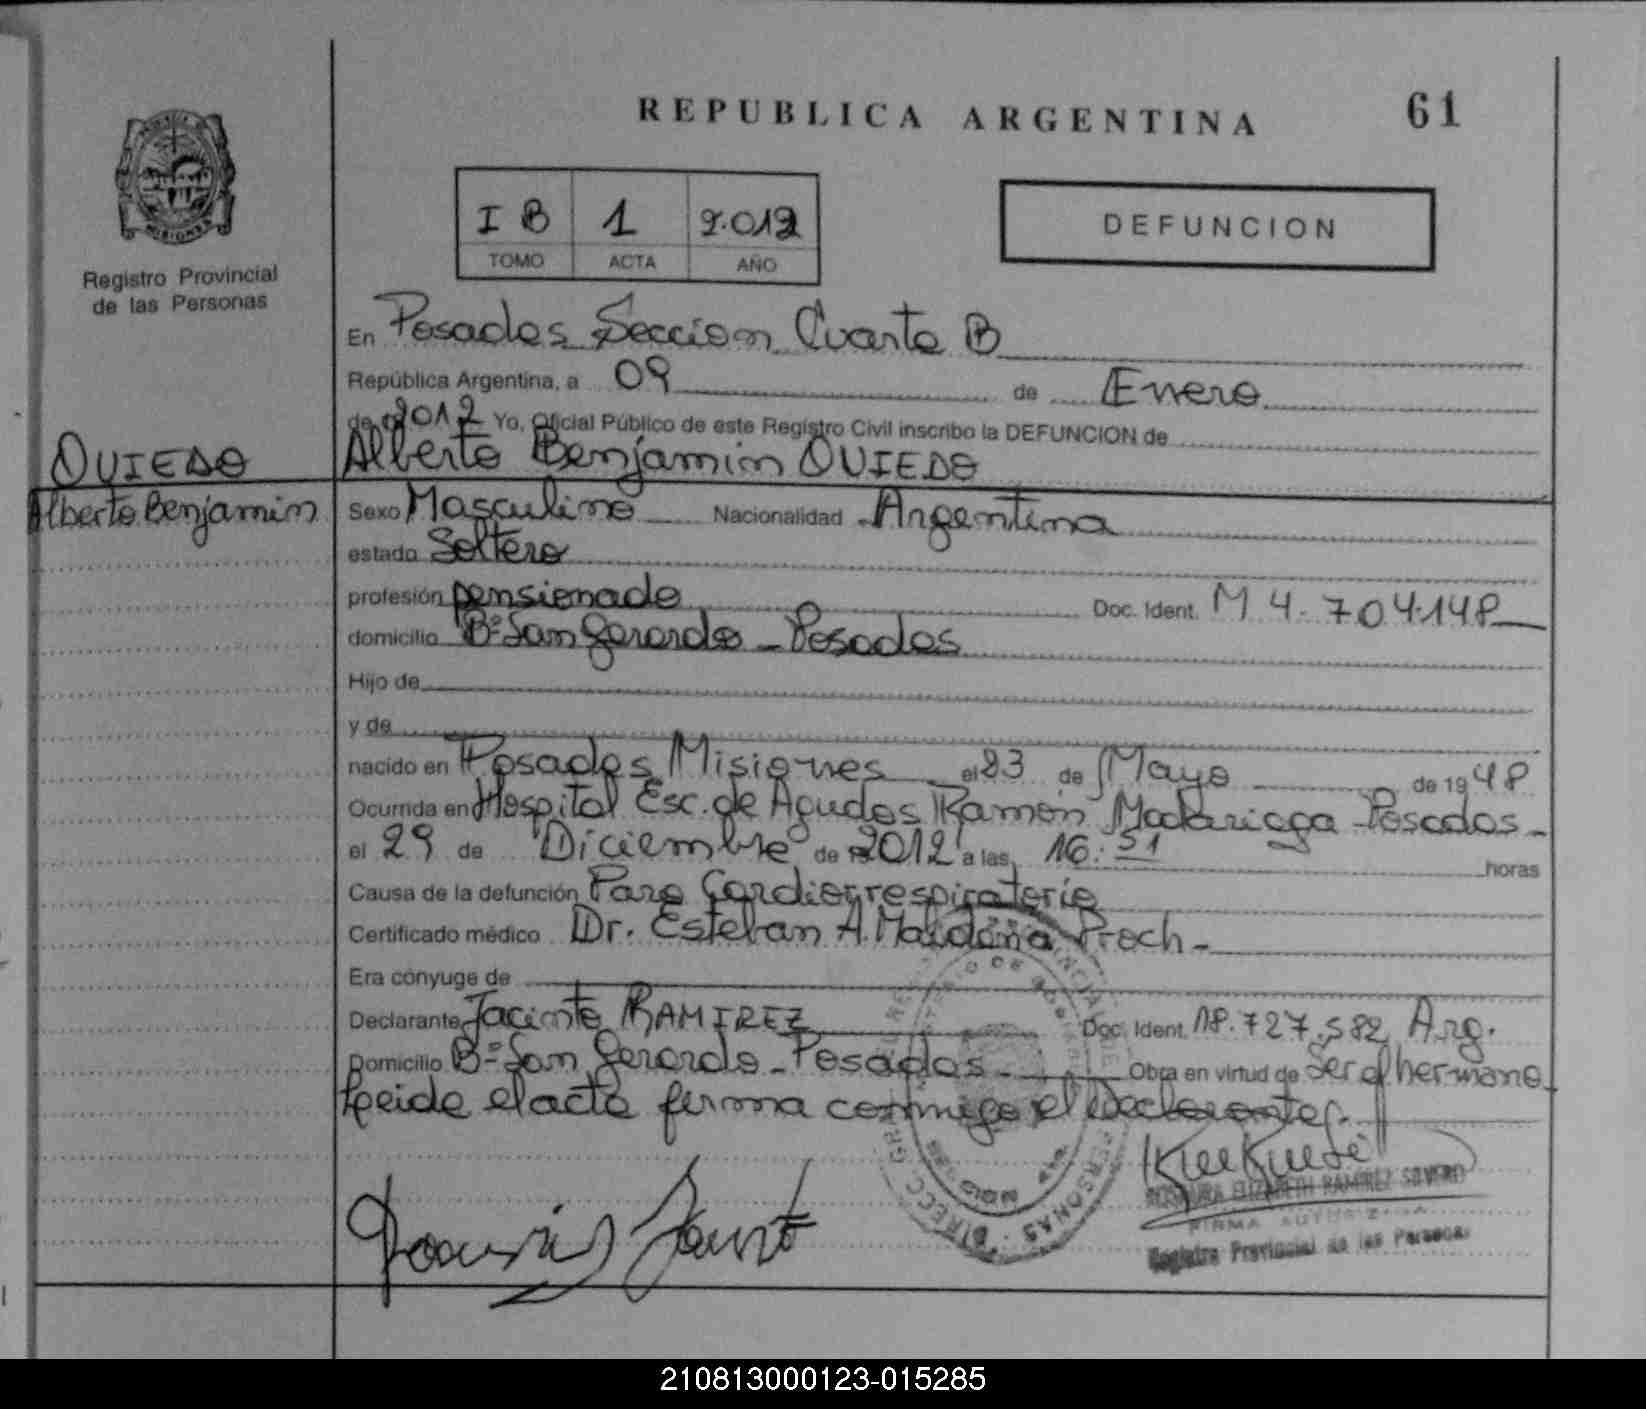 REPUBLICA ARGENTINA 61
I B 1 2.012
TOMO ACTA AÑO
DEFUNCION
Registro Provincial
de las Personas
En Posadas Sección Cuarta B
República Argentina, a 09 de Enero
de 2012 Yo, Oficial Público de este Registro Civil inscribo la DEFUNCION de
OVIEDO Alberto Benjamin OVIEDO
Alberto Benjamin Sexo Masculino Nacionalidad Argentina
estado Soltero
profesión pensionado Doc. Ident. M 4.704.148
domicilio Bº San Gerardo - Posadas
Hijo de
y de
nacido en Posadas Misiones el 23 de Mayo de 1948
Ocurrida en Hospital Esc. de Agudos Ramón Madariaga Posadas -
el 29 de Diciembre de 2012 a las 16:51 horas
Causa de la defunción Paro Cardiorrespiratorio
Certificado médico Dr. Esteban A. Proch -
Era cónyuge de
Declarante Jacinto RAMIREZ Doc. Ident. 18.727.582 Arg.
Domicilio Bº San Gerardo - Posadas - Obra en virtud de Ser el hermano
Leida el acta firma conmigo el Declarante.
FIRMA AUTORIZADA
Registro Provincial de las Personas
210813000123-015285